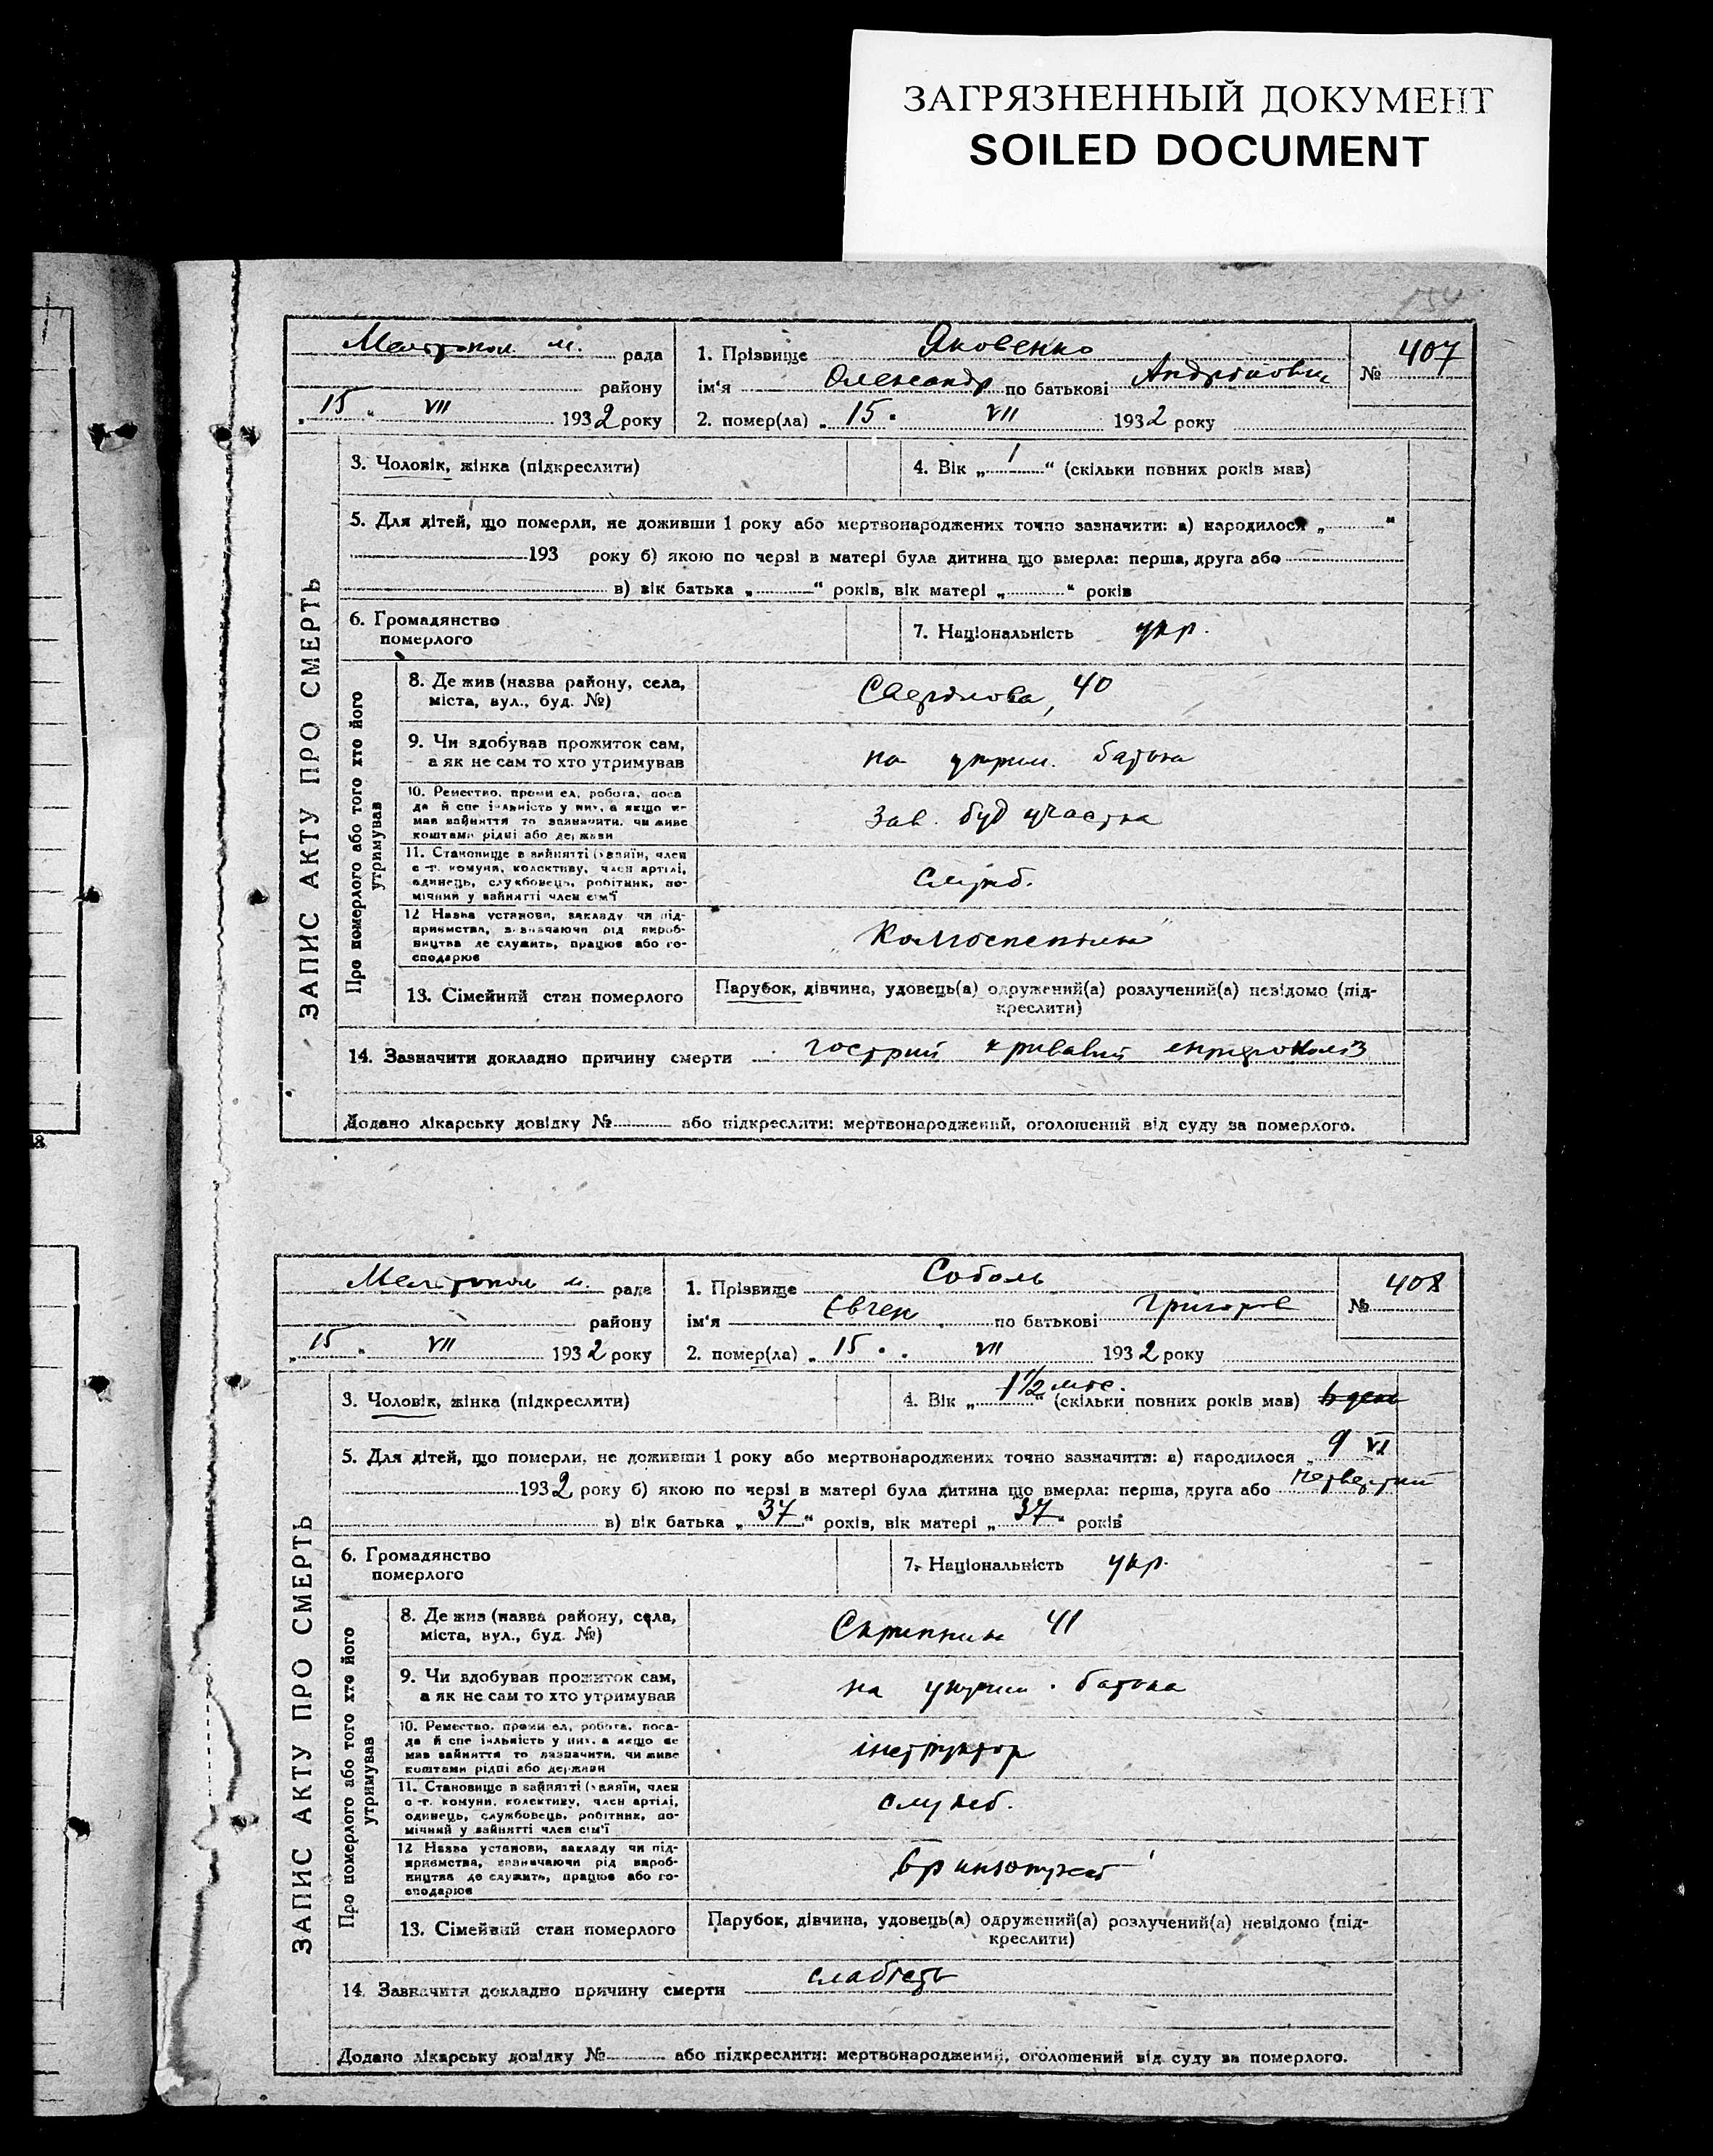 ЗАГРЯЗНЕННЫЙ ДОКУМЕНТ
SOILED DOCUMENT
ЗАПИС АКТУ ПРО СМЕРТЬ
м. рада
району
„ 15 “ VII 1932 року
1. Прізвище Яковенко
ім'я Олександр по батькові
№ 407
2. помер(ла) „ 15 “ VII 1932 року
3. Чоловік, жінка (підкреслити)
4. Вік „ 1 “ (скільки повних років мав)
5. Для дітей, що померли, не доживши 1 року або мертвонароджених точно зазначити: а) народилося „ “
193 року б) якою по черзі в матері була дитина що вмерла: перша, друга або
в) вік батька „ “ років, вік матері „ “ років
6. Громадянство
померлого
7. Національність укр.
Про померлого або того хто його
утримував
8. Де жив (назва району, села,
міста, вул., буд. №)
Свердлова, 40
9. Чи здобував прожиток сам,
а як не сам то хто утримував
на утрим. батька
10. Ремество, промисел, робота, поса
да й спеціяльність у них, а якщо не
мав зайняття то зазначити, чи живе
коштами рідні або держави
Зав. буд участка
11. Становище в зайнятті (хазяїн, член
с.-г. комуни, колективу, член артілі,
одинець, службовець, робітник, по-
мічний у зайнятті член сім'ї
служб.
12 Назва установи, закладу чи під-
приємства, зазначаючи рід вироб-
ництва де служить, працює або го-
сподарює
13. Сімейний стан померлого
Парубок, дівчина, удовець(а) одружений(а) розлучений(а) невідомо (під-
креслити)
14. Зазначити докладно причину смерти гострий кривавий
Додано лікарську довідку № або підкреслити: мертвонароджений, оголошений від суду за померлого.
ЗАПИС АКТУ ПРО СМЕРТЬ
м. рада
району
„ 15 “ VII 1932 року
1. Прізвище Соболь
ім'я Євген по батькові Григоров
№ 408
2. помер(ла) „ 15 “ VII 1932 року
3. Чоловік, жінка (підкреслити)
4. Вік „ 1½ міс. “ (скільки повних років мав)
5. Для дітей, що померли, не доживши 1 року або мертвонароджених точно зазначити: а) народилося „ 9 VI
1932 року б) якою по черзі в матері була дитина що вмерла: перша, друга або четвертий
в) вік батька „ 37 “ років, вік матері „ 37 “ років
6. Громадянство
померлого
7. Національність укр.
Про померлого або того хто його
утримував
8. Де жив (назва району, села,
міста, вул., буд. №)
Скрипника 41
9. Чи здобував прожиток сам,
а як не сам то хто утримував
на утрим. батька
10. Ремество, промисел, робота, поса-
да й спеціяльність у них, а якщо не
мав зайняття то зазначити, чи живе
коштами рідні або держави
інструктор
11. Становище в зайнятті (хазяїн, член
с.-г. комуни, колективу, член артілі,
одинець, службовець, робітник, по-
мічний у зайнятті член сім'ї
служб.
12 Назва установи, закладу чи під-
приємства, зазначаючи рід вироб-
ництва де служить, працює або го-
сподарює
13. Сімейний стан померлого
Парубок, дівчина, удовець(а) одружений(а) розлучений(а) невідомо (під-
креслити)
14. Зазначити докладно причину смерти слабість
Додано лікарську довідку № або підкреслити: мертвонароджений, оголошений від суду за померлого.